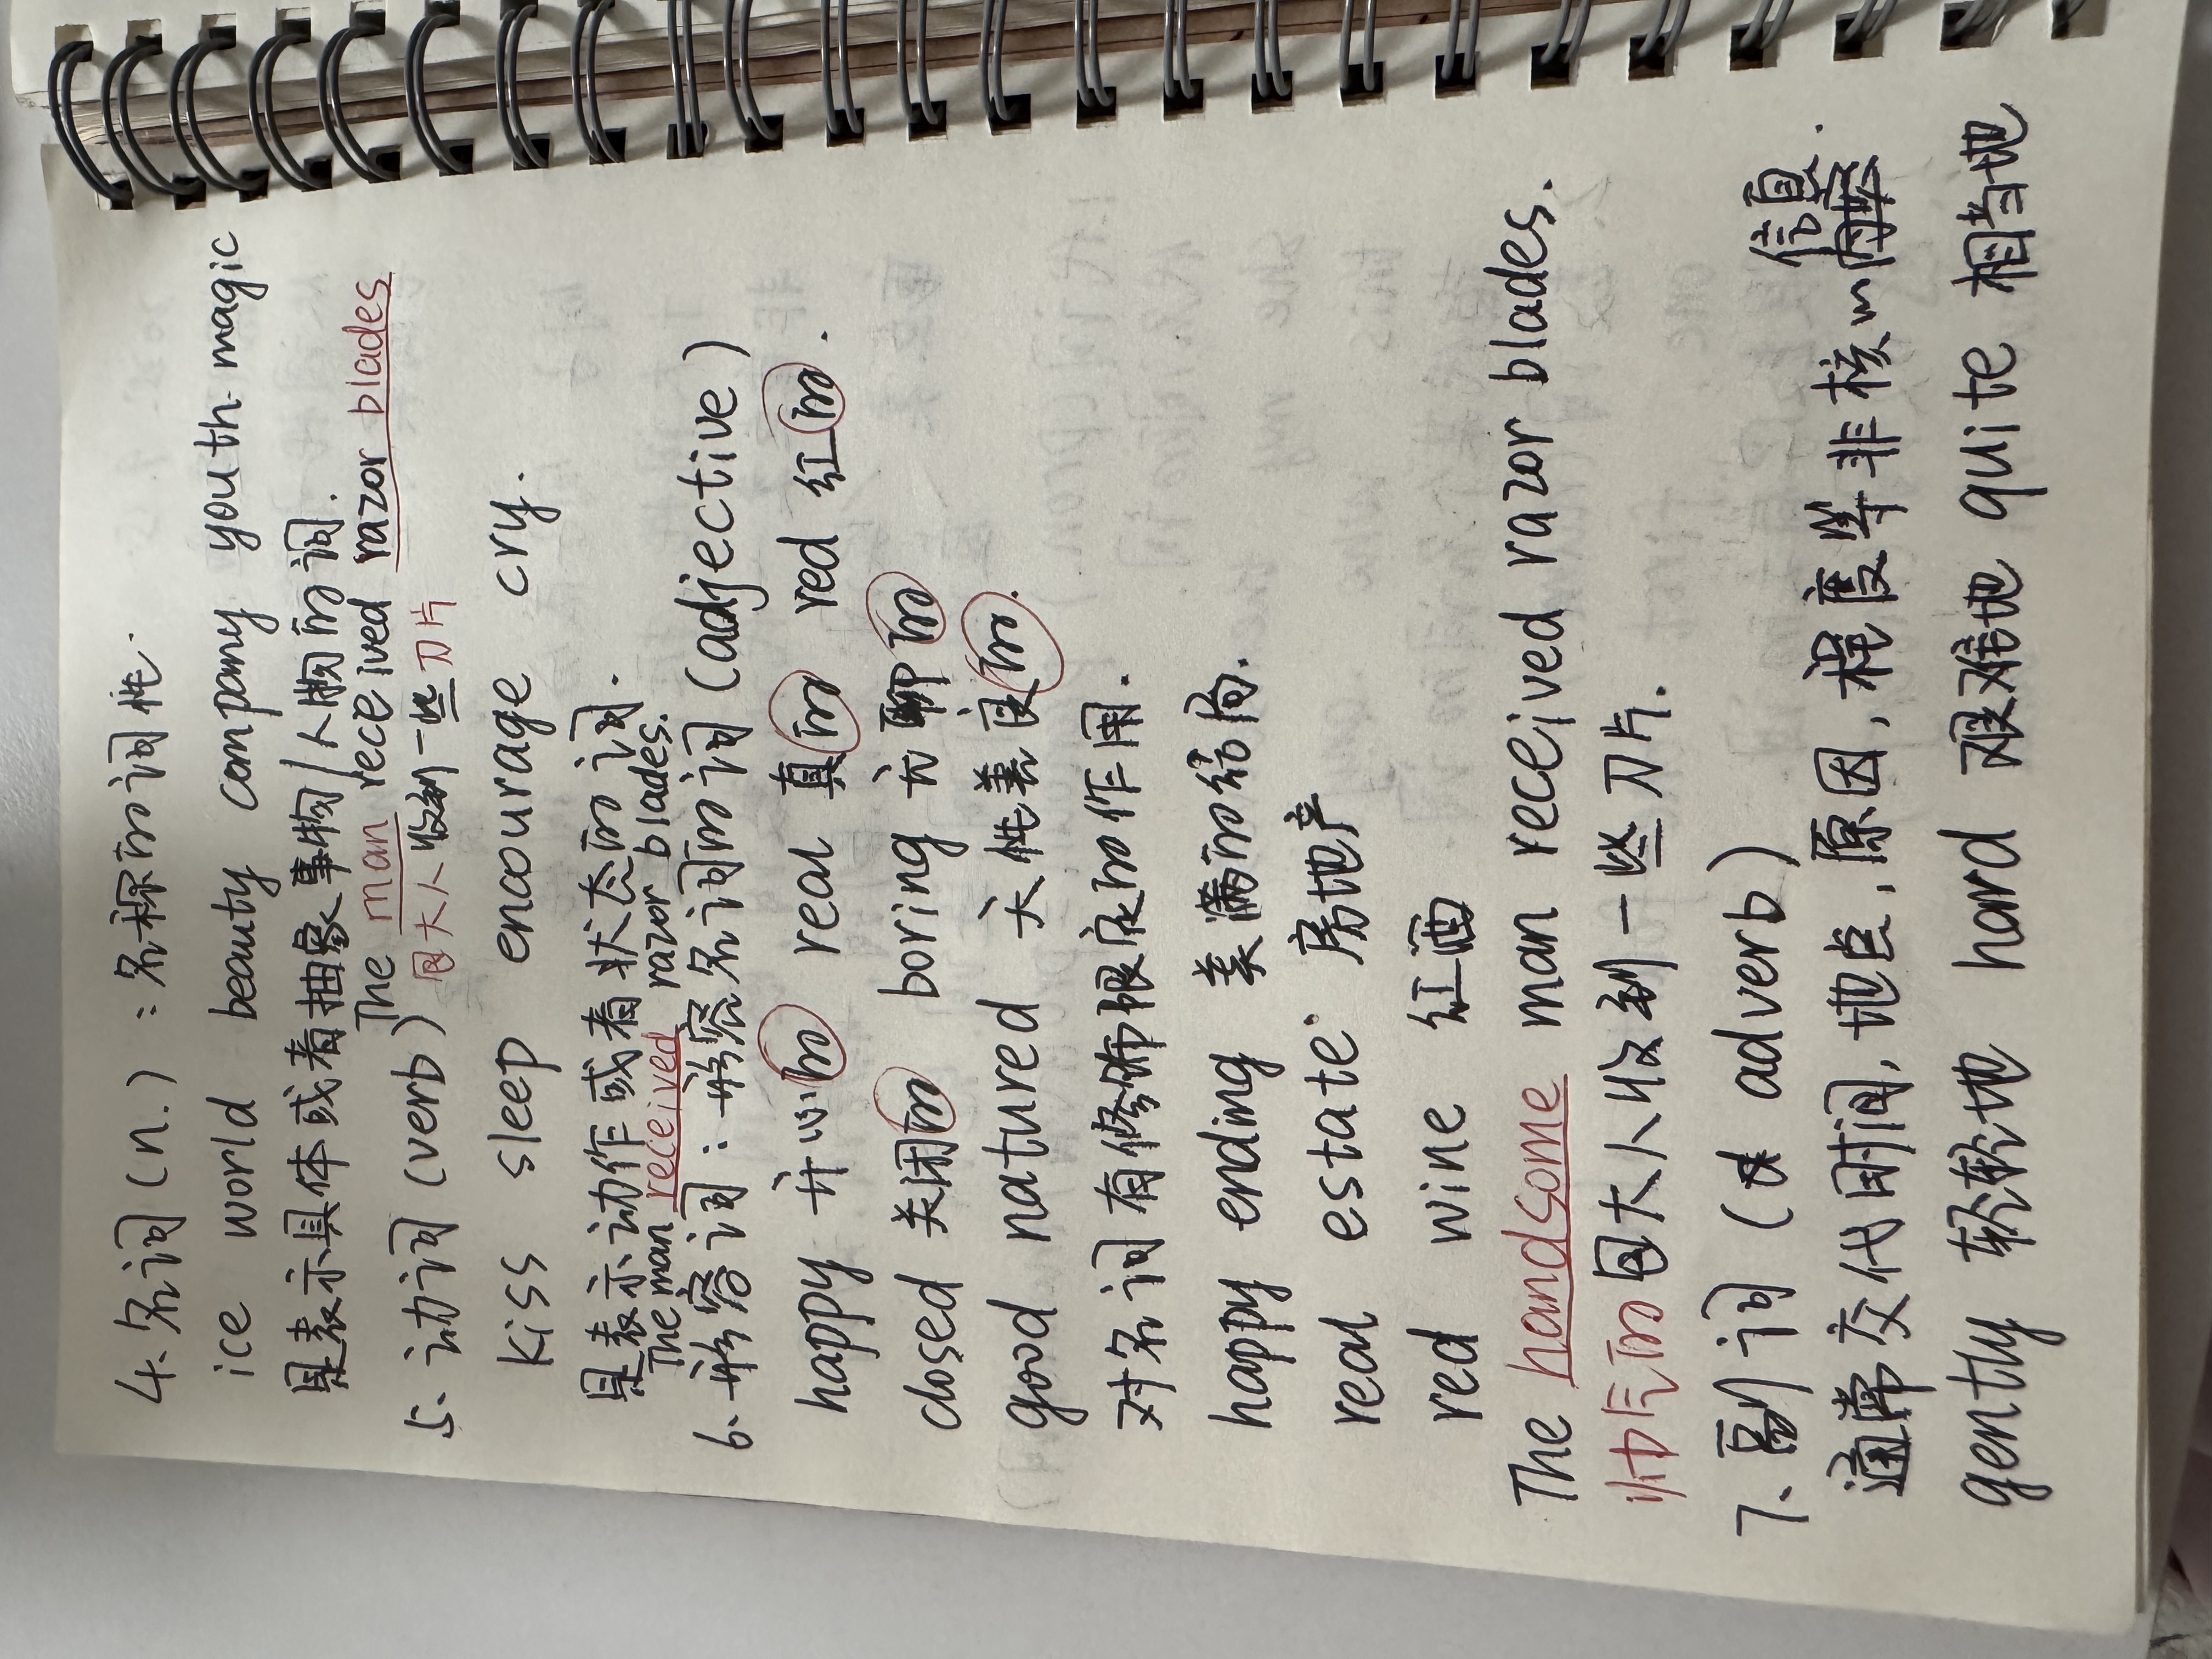 4、名词(n.):名称的词性.
ice world beauty company youth magic
是表示具体或者抽象事物/人物的词.
The man received razor blades
5、动词(verb) 包大人收到一些刀片
kiss sleep encourage cry.
是表示动作或者状态的词.
The man received razor blades.
6、形容词:形容名词的词(adjective)
happy 开心的 real 真的 red 红的.
closed 关闭的 boring 无聊的
good natured 天性善良的.
对名词有修饰限定的作用.
happy ending 美满的结局.
real estate 房地产
red wine 红酒
The handsome man received razor blades.
帅气的包大人收到一些刀片.
7、副词(adverb)
信息.
通常交代时间,地点,原因,程度等非核心内容
gently 轻轻地 hard 艰难地 quite 相当地